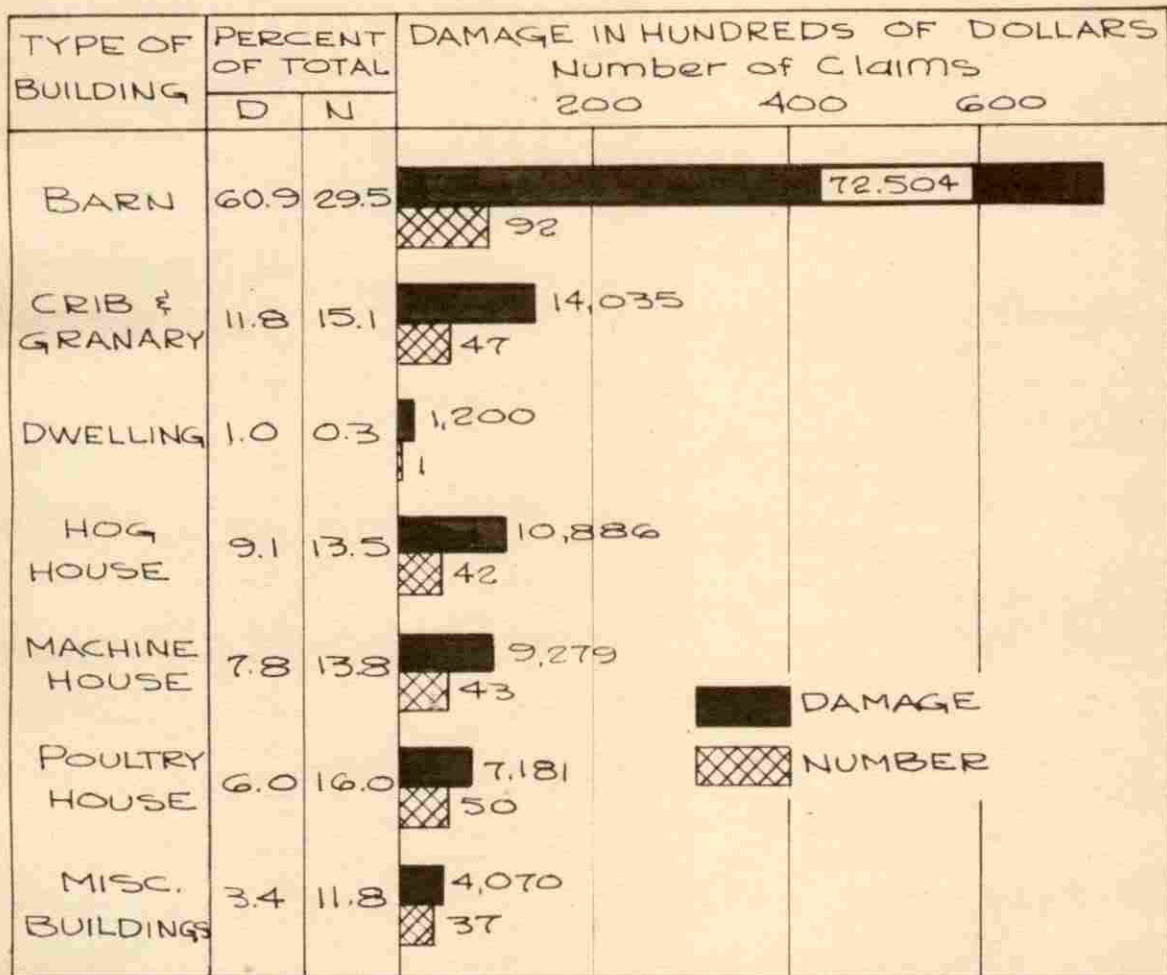 TYPE OF BUILDING
PERCENT OF TOTAL
D N
DAMAGE IN HUNDREDS OF DOLLARS
Number of Claims
200 400 600
BARN 60.9 29.5 72.504
92
CRIB & GRANARY 11.8 15.1 14,035
47
DWELLING 1.0 0.3 1,200
1
HOG HOUSE 9.1 13.5 10,886
42
MACHINE HOUSE 7.8 13.8 9,279
43
POULTRY HOUSE 6.0 16.0 7.181
50
MISC. BUILDINGS 3.4 11.8 4,070
37
DAMAGE
NUMBER